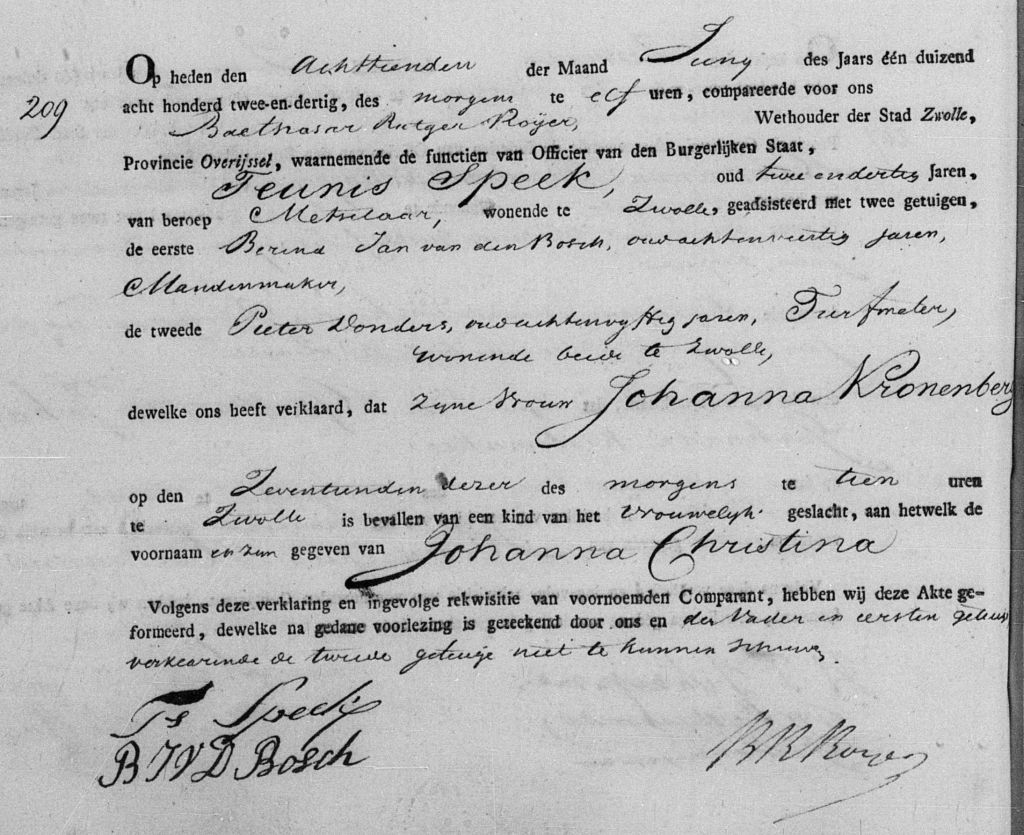 Op heden den Achttienden der Maand Juny des Jaars één duizend
209
acht honderd twee-en-dertig, des morgens te elf uren, compareerde voor ons
Balthasar Rutger Royer, Wethouder der Stad Zwolle,
Provincie Overijssel, waarnemende de functien van Officier van den Burgerlijken Staat,
Teunis Speek, oud twee en dertig Jaren,
van beroep Metselaar, wonende te Zwolle, geadsisteerd met twee getuigen,
de eerste Berend Jan van den Bosch, oud achtenveertig jaren,
Mandenmaker,
de tweede Pieter Donders, oud achtenvyftig jaren, Turfmeter,
wonende beide te Zwolle,
dewelke ons heeft verklaard, dat zyne Vrouw Johanna Kronenberg
op den Zeventienden dezer des morgens te tien uren
te Zwolle is bevallen van een kind van het Vrouwelyk geslacht, aan hetwelk de
voornaam en zyn gegeven van Johanna Christina
Volgens deze verklaring en ingevolge rekwisitie van voornoemden Comparant, hebben wij deze Akte ge-
formeerd, dewelke na gedane voorlezing is geteekend door ons en den Vader en eersten getuige
verklarende de tweede getuige niet te kunnen schryven
Ts Speck
B J V D Bosch
B R Royer